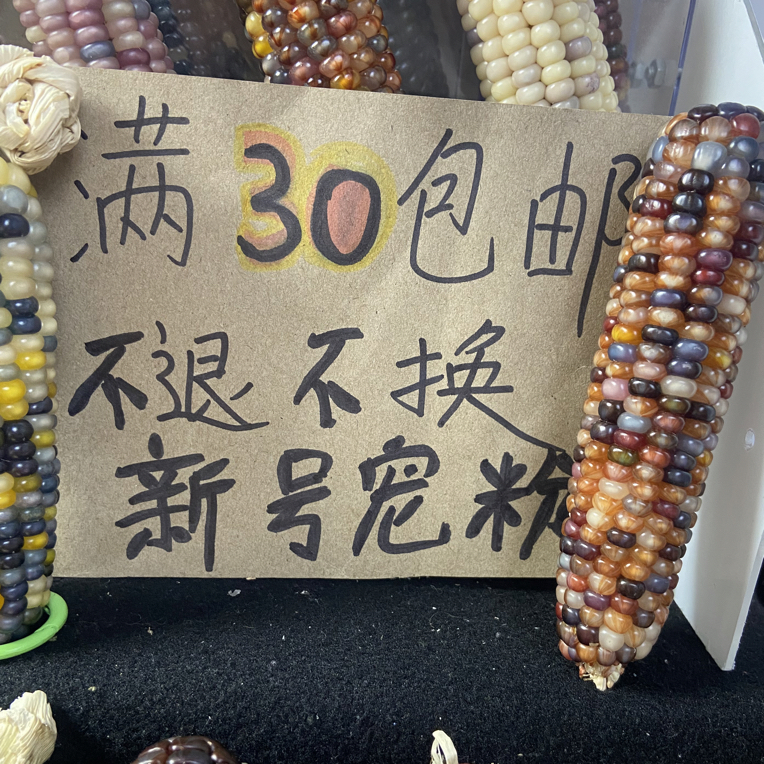 满30包邮
不退不换
新号宠粉